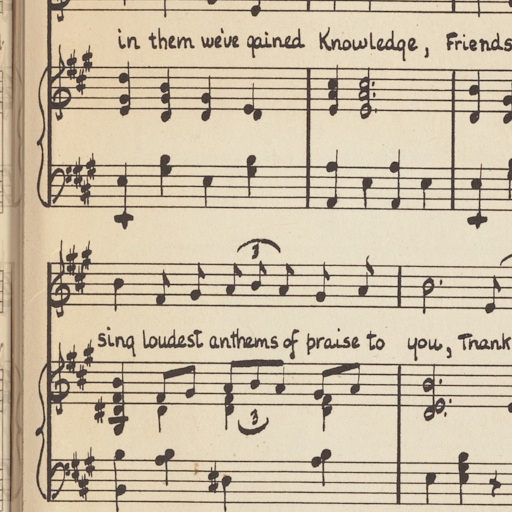 in them we've gained Knowledge, Friends
3
sing loudest anthems of praise to you, Thank
3